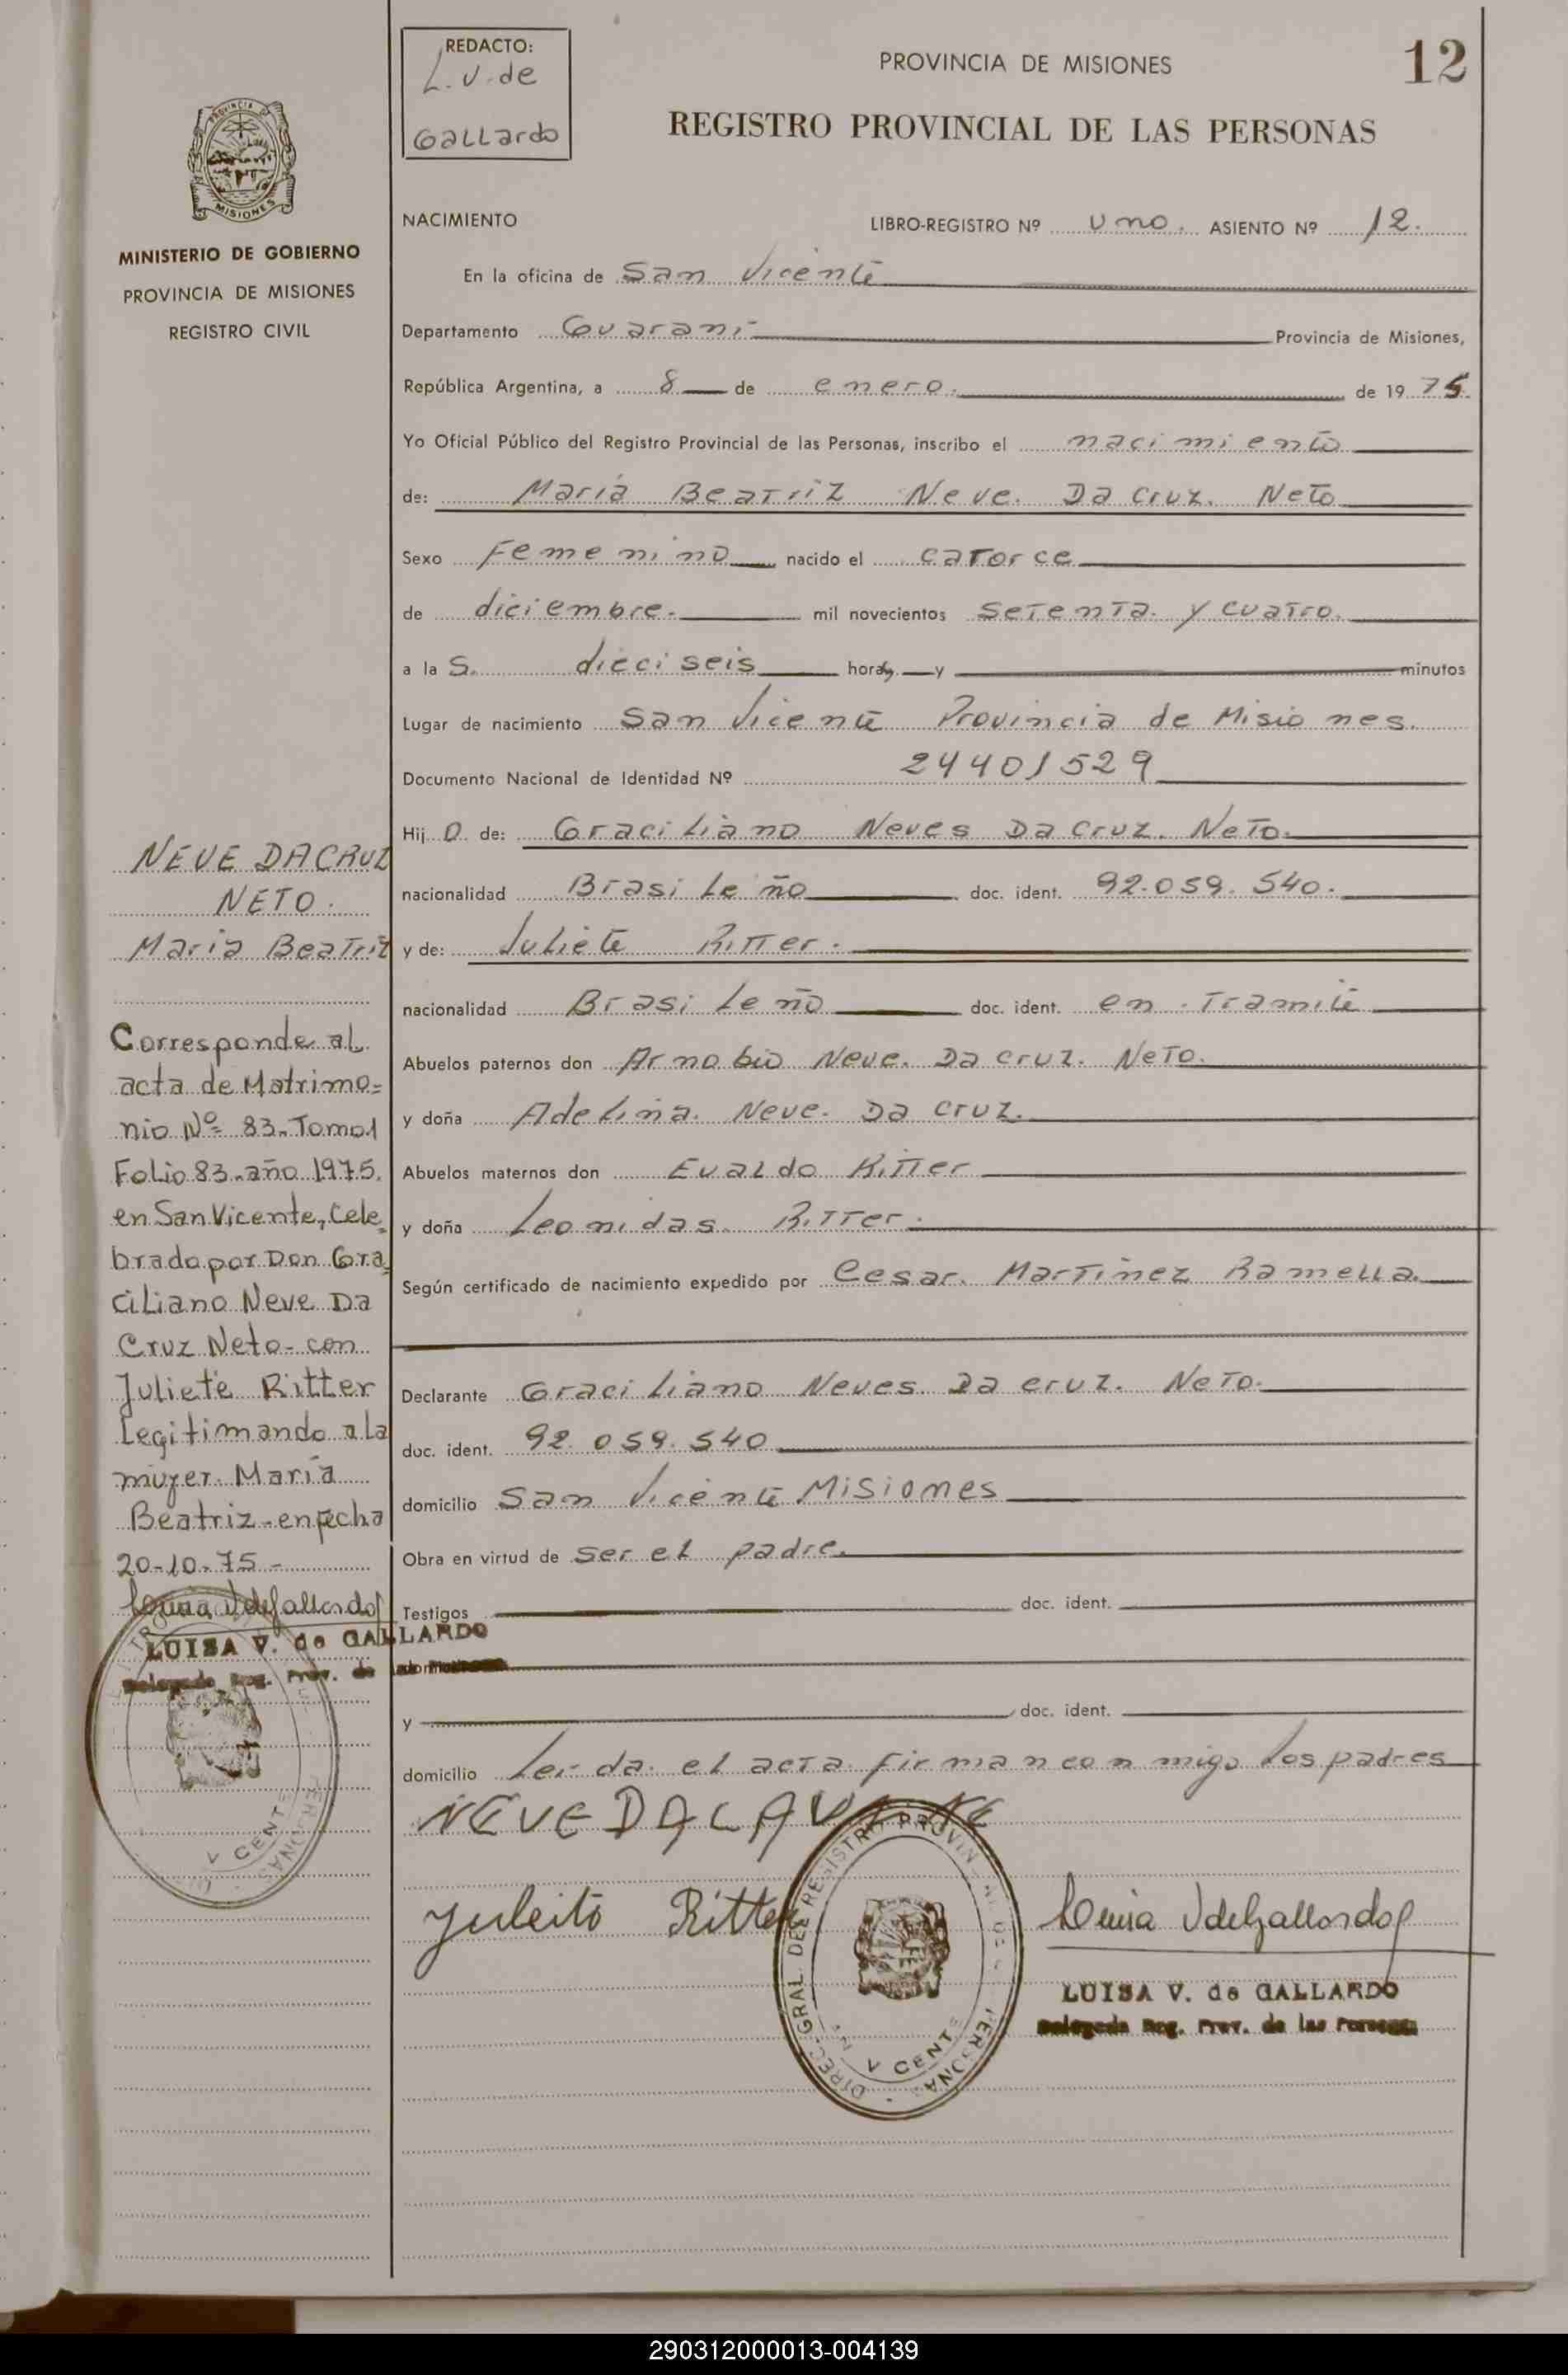 REDACTO:
L. V. de
Gallardo
PROVINCIA DE MISIONES
12
REGISTRO PROVINCIAL DE LAS PERSONAS
PROVINCIA DE
MISIONES
MINISTERIO DE GOBIERNO
PROVINCIA DE MISIONES
REGISTRO CIVIL
NACIMIENTO LIBRO-REGISTRO Nº Uno. ASIENTO Nº 12.
En la oficina de San Vicente
Departamento Guaraní Provincia de Misiones,
República Argentina, a 8 de enero. de 1975.
Yo Oficial Público del Registro Provincial de las Personas, inscribo el nacimiento
de: María Beatriz Neve. Da Cruz. Neto
Sexo Femenino nacido el catorce
de diciembre. mil novecientos setenta. y cuatro.
a las. dieciseis horas y minutos
Lugar de nacimiento San Vicente Provincia de Misiones.
Documento Nacional de Identidad Nº 24401529
Hij o de: Graciliano Neves Da Cruz. Neto.
nacionalidad Brasileño doc. ident. 92.059.540.
y de: Juliete Ritter.
nacionalidad Brasileño doc. ident. en tramite
Abuelos paternos don Arnobio Neve. Da Cruz. Neto.
y doña Adelina. Neve. Da Cruz.
Abuelos maternos don Evaldo Ritter
y doña Leonidas. Ritter.
Según certificado de nacimiento expedido por Cesar. Martinez Ramella.
Declarante Graciliano Neves Da Cruz. Neto.
doc. ident. 92.059.540
domicilio San Vicente Misiones
Obra en virtud de ser el padre.
Testigos doc. ident.
y doc. ident.
domicilio Leida. el acta firman conmigo los padres
NEVE DA
Juleito Ritter
Luisa V de Gallardo
LUISA V. de GALLARDO
Delegada Reg. Prov. de las Personas
DIREC. GRAL. DEL REGISTRO PROVIN
PERSONAS
V CENTE
NEVE DA CRUZ
NETO.
María Beatriz
Corresponde al
acta de Matrimo=
nio Nº 83. Tomo 1
Folio 83. año 1975.
en San Vicente, Cele
brado por Don Gra
ciliano Neve Da
Cruz Neto - con
Juliete Ritter
Legitimando a la
mujer María
Beatriz - en fecha
20-10-75 -
Luisa V de Gallardo
LUISA V. de GALLARDO
Delegada Reg. Prov. de
V CENTE
290312000013-004139